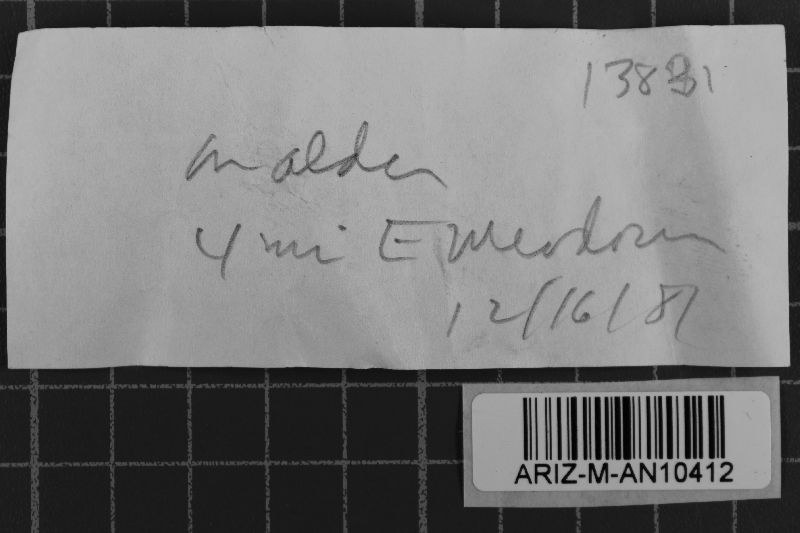 13831
on alder
4 mi E Meadow
12/16/81
ARIZ-M-AN10412